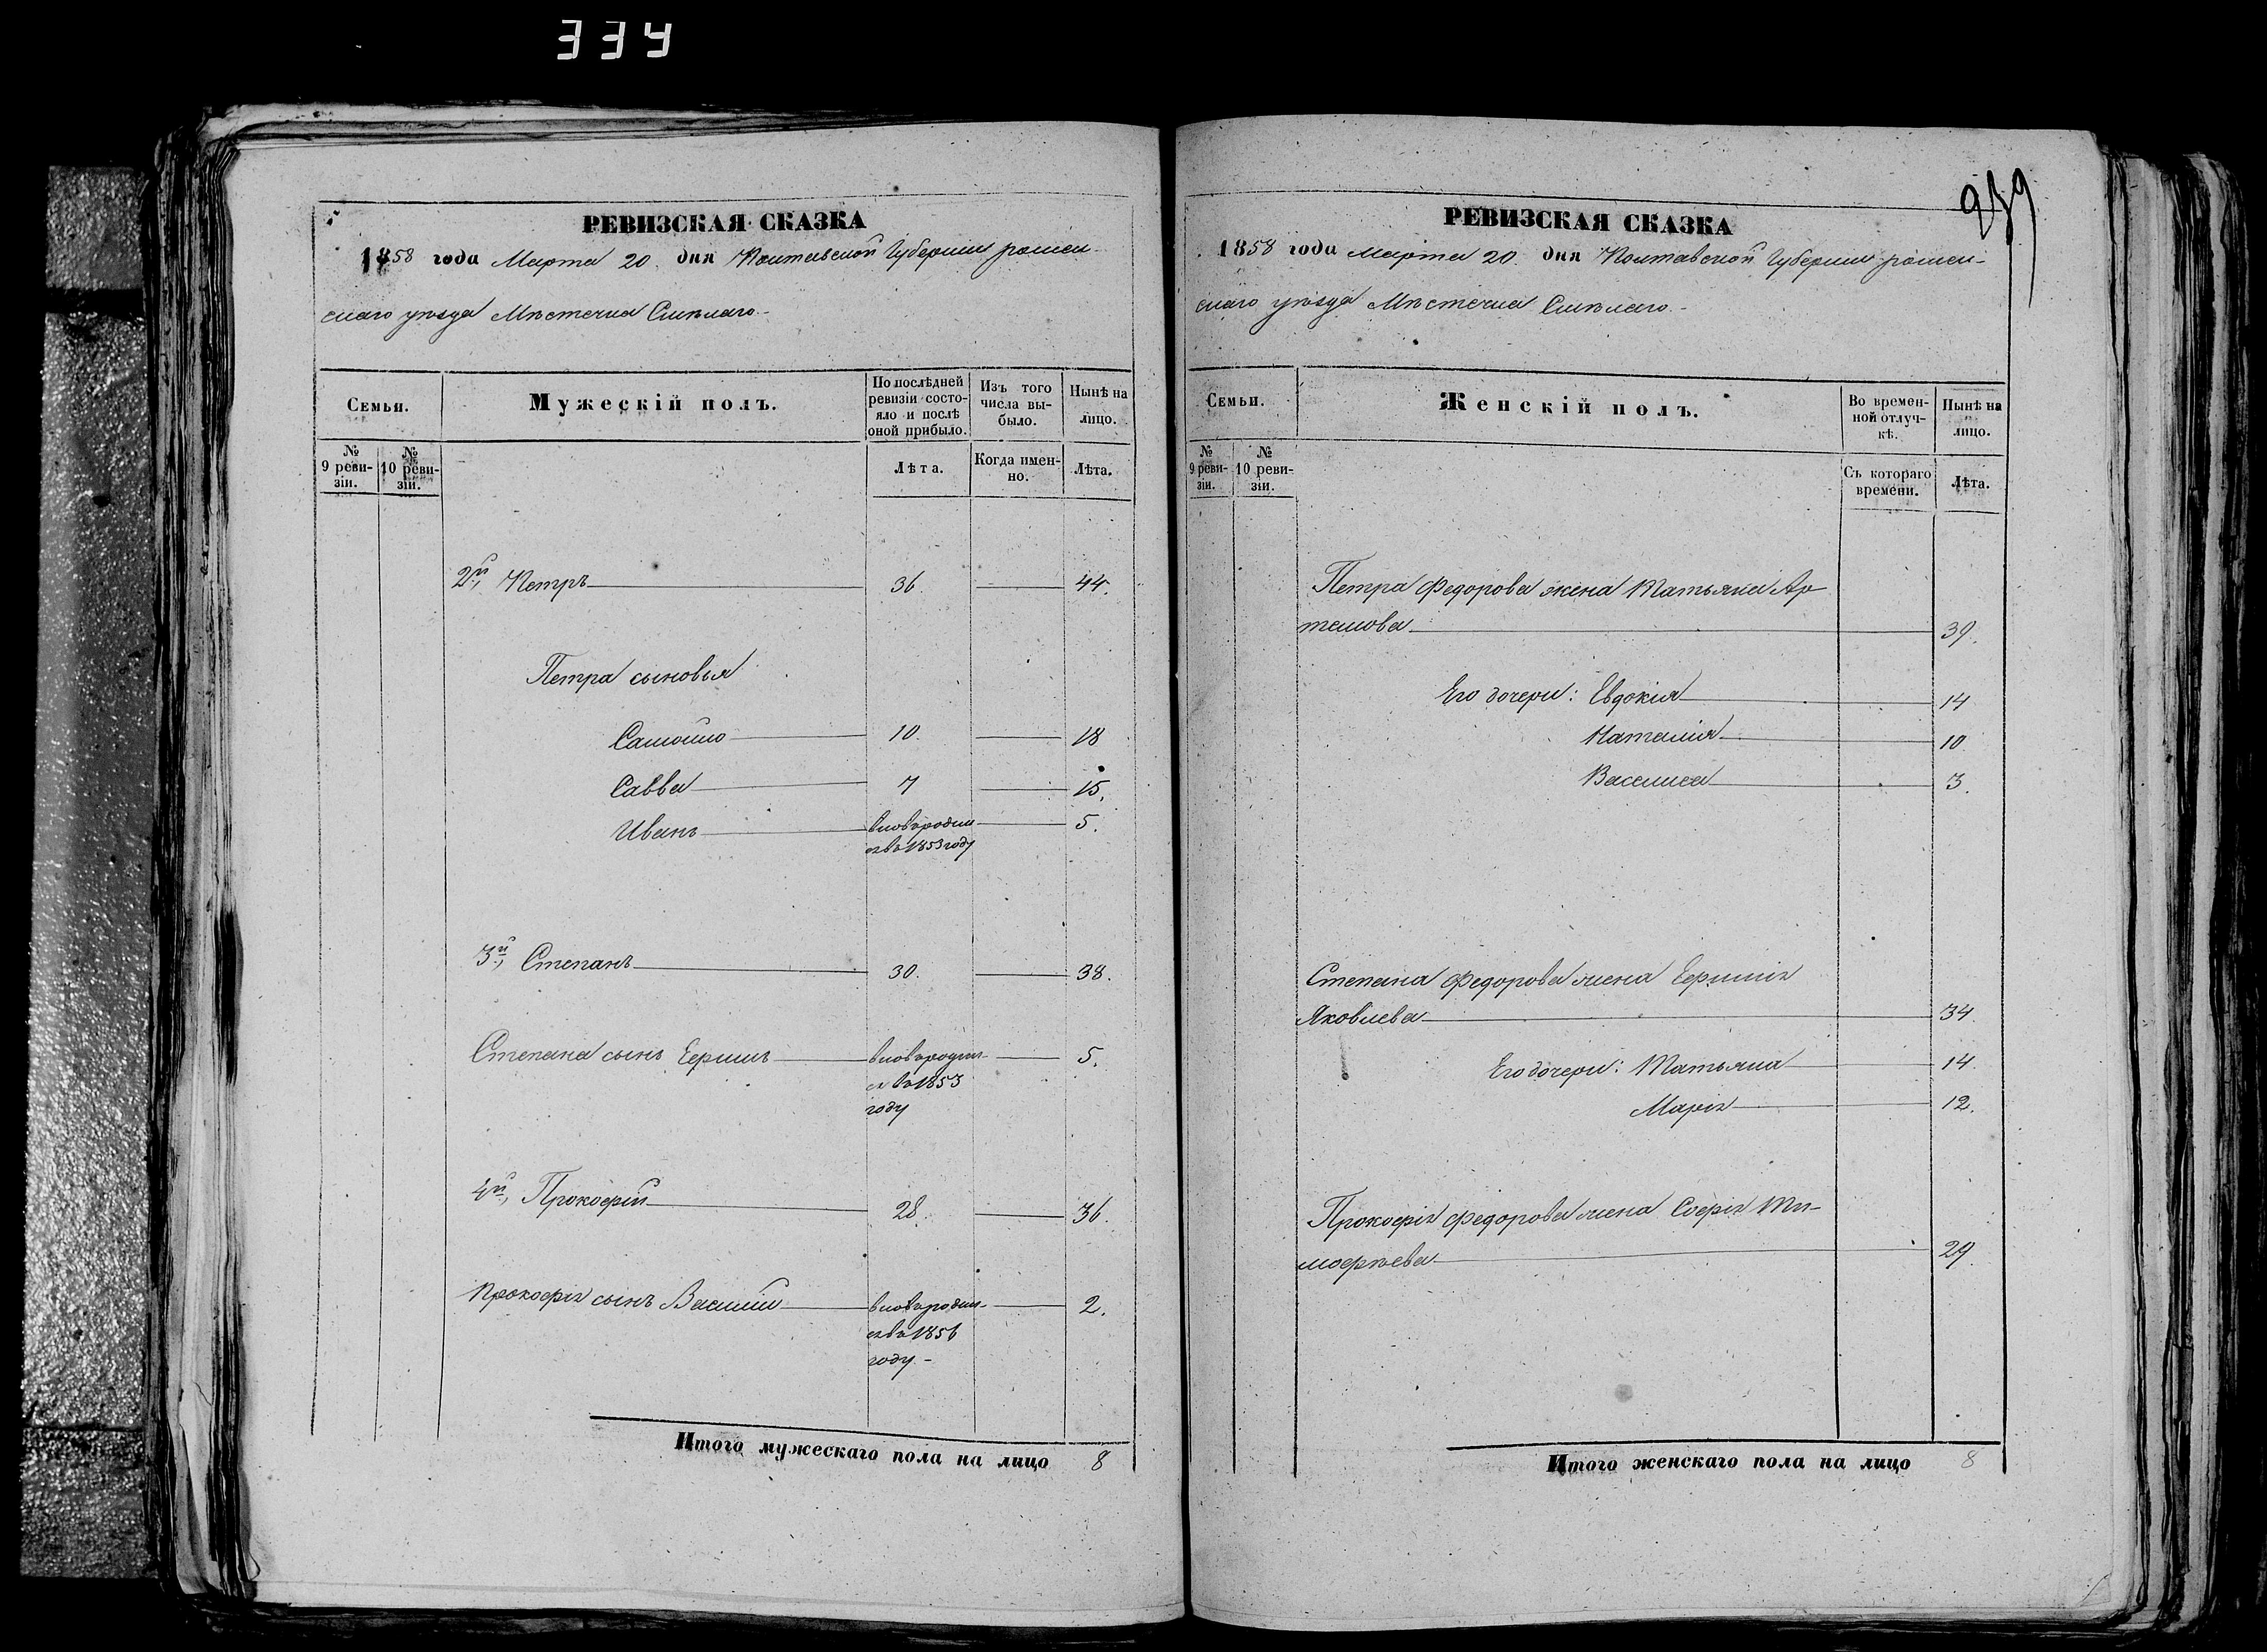 334
РЕВИЗСКАЯ СКАЗКА
1858 года Марта 20. дня Полтавской Губернии ромен-
скаго уѣзда Мѣстечка Смѣлаго.-
Семьи.
Мужескій полъ.
По послѣдней ревизіи состо-
яло и послѣ оной прибыло.
Изъ того числа вы-
было.
Нынѣ на лицо.
№ 9 реви-
зіи.
№ 10 реви-
зіи.
Лѣта.
Когда имен-
но.
Лѣта.
2й, Петръ 36. 44.
Петра сыновья
Самойло 10 18
Савва 7 15.
Иванъ вновьродил 5.
ся въ 1853 году
3й, Степанъ 30. 38.
Степана сынъ Ефимъ вновьродил- 5.
ся въ 1853
году
4й, Прокофій 28. 36.
Прокофія сынъ Василій вновьродил- 2.
ся въ 1856
году -
Итого мужескаго пола на лицо 8
РЕВИЗСКАЯ СКАЗКА
1858 года Марта 20. дня Полтавской Губернии ромен-
скаго уѣзда Мѣстечка Смѣлаго.-
Семьи.
Женскій полъ.
Во времен-
ной отлуч-
кѣ.
Нынѣ на лицо.
№ 9 реви-
зіи.
№ 10 реви-
зіи.
Съ котораго времени.
Лѣта.
Петра Федорова жена Татьяна Ар-
темова 39.
Его дочери: Евдокія 14
Наталія 10.
Василиса 3.
Степана Федорова жена
Яковлева 34.
Его дочери: Татьяна 14.
Марія 12.
Прокофія Федорова жена Софія Ти-
мофѣева 29.
Итого женскаго пола на лицо 8